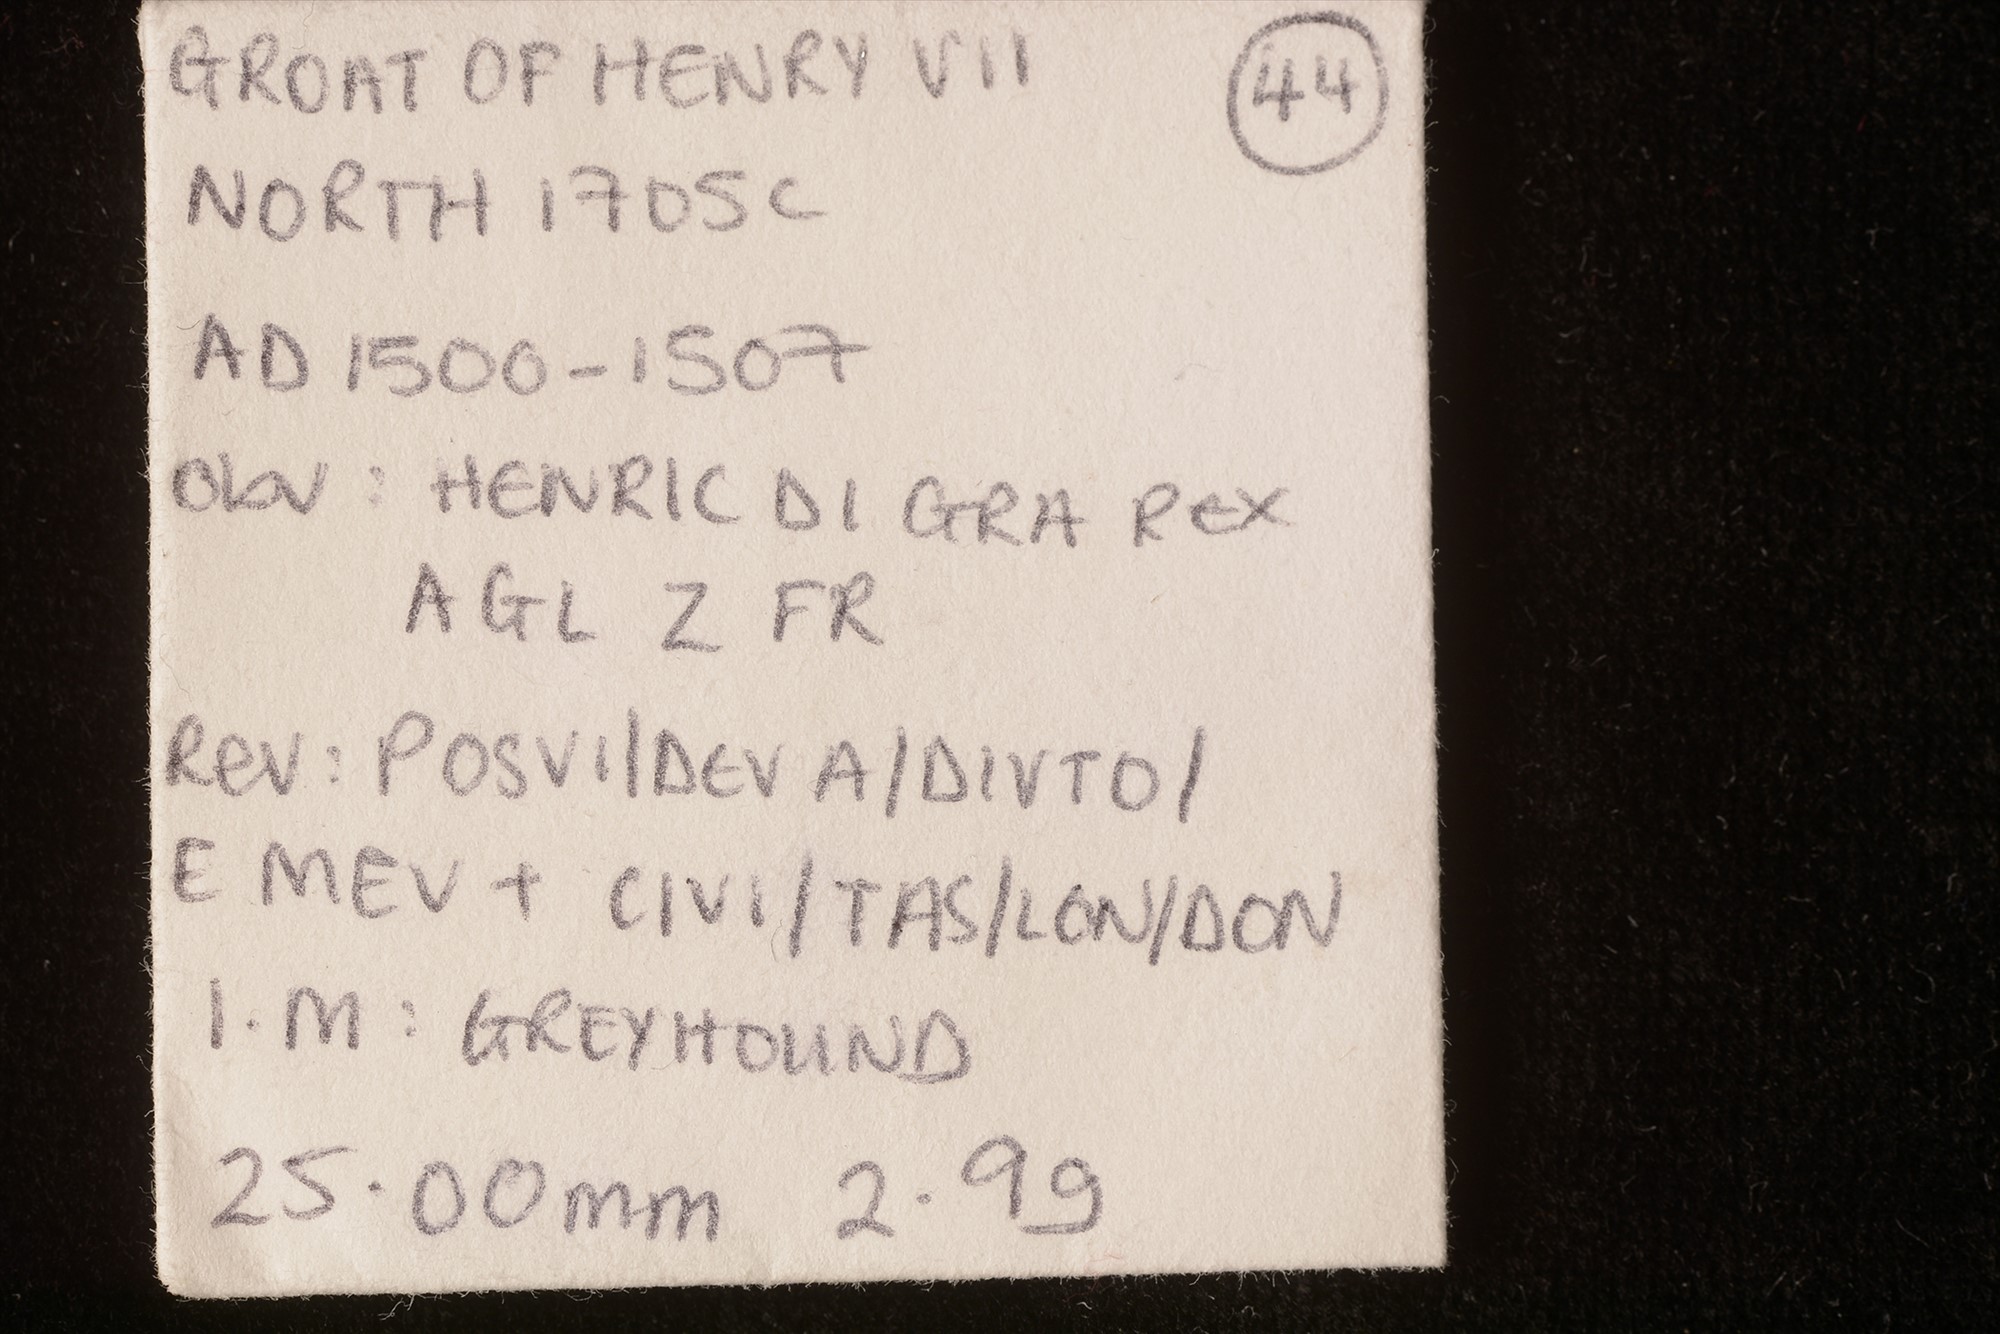 GROAT OF HENRY VII
44
NORTH 1705C
AD 1500-1507
Obv: HENRIC DI GRA REX
AGL Z FR
Rev: POSVI/DEV A/DIVTO/
E MEV + CIVI/TAS/LON/DON
I.M: GREYHOUND
25.00mm 2.9g